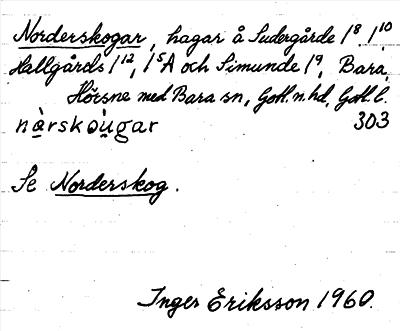 Norderskogar, hagar å Sudergårde 1⁸, 1¹⁰,
Hallgårds 1¹², 1⁵A och Simunde 1⁹, Bara,
Hörsne med Bara sn, Gotl. n. hd, Gotl. l.
nàrskòu̯gar 303
Se Norderskog.
Inger Eriksson 1960.